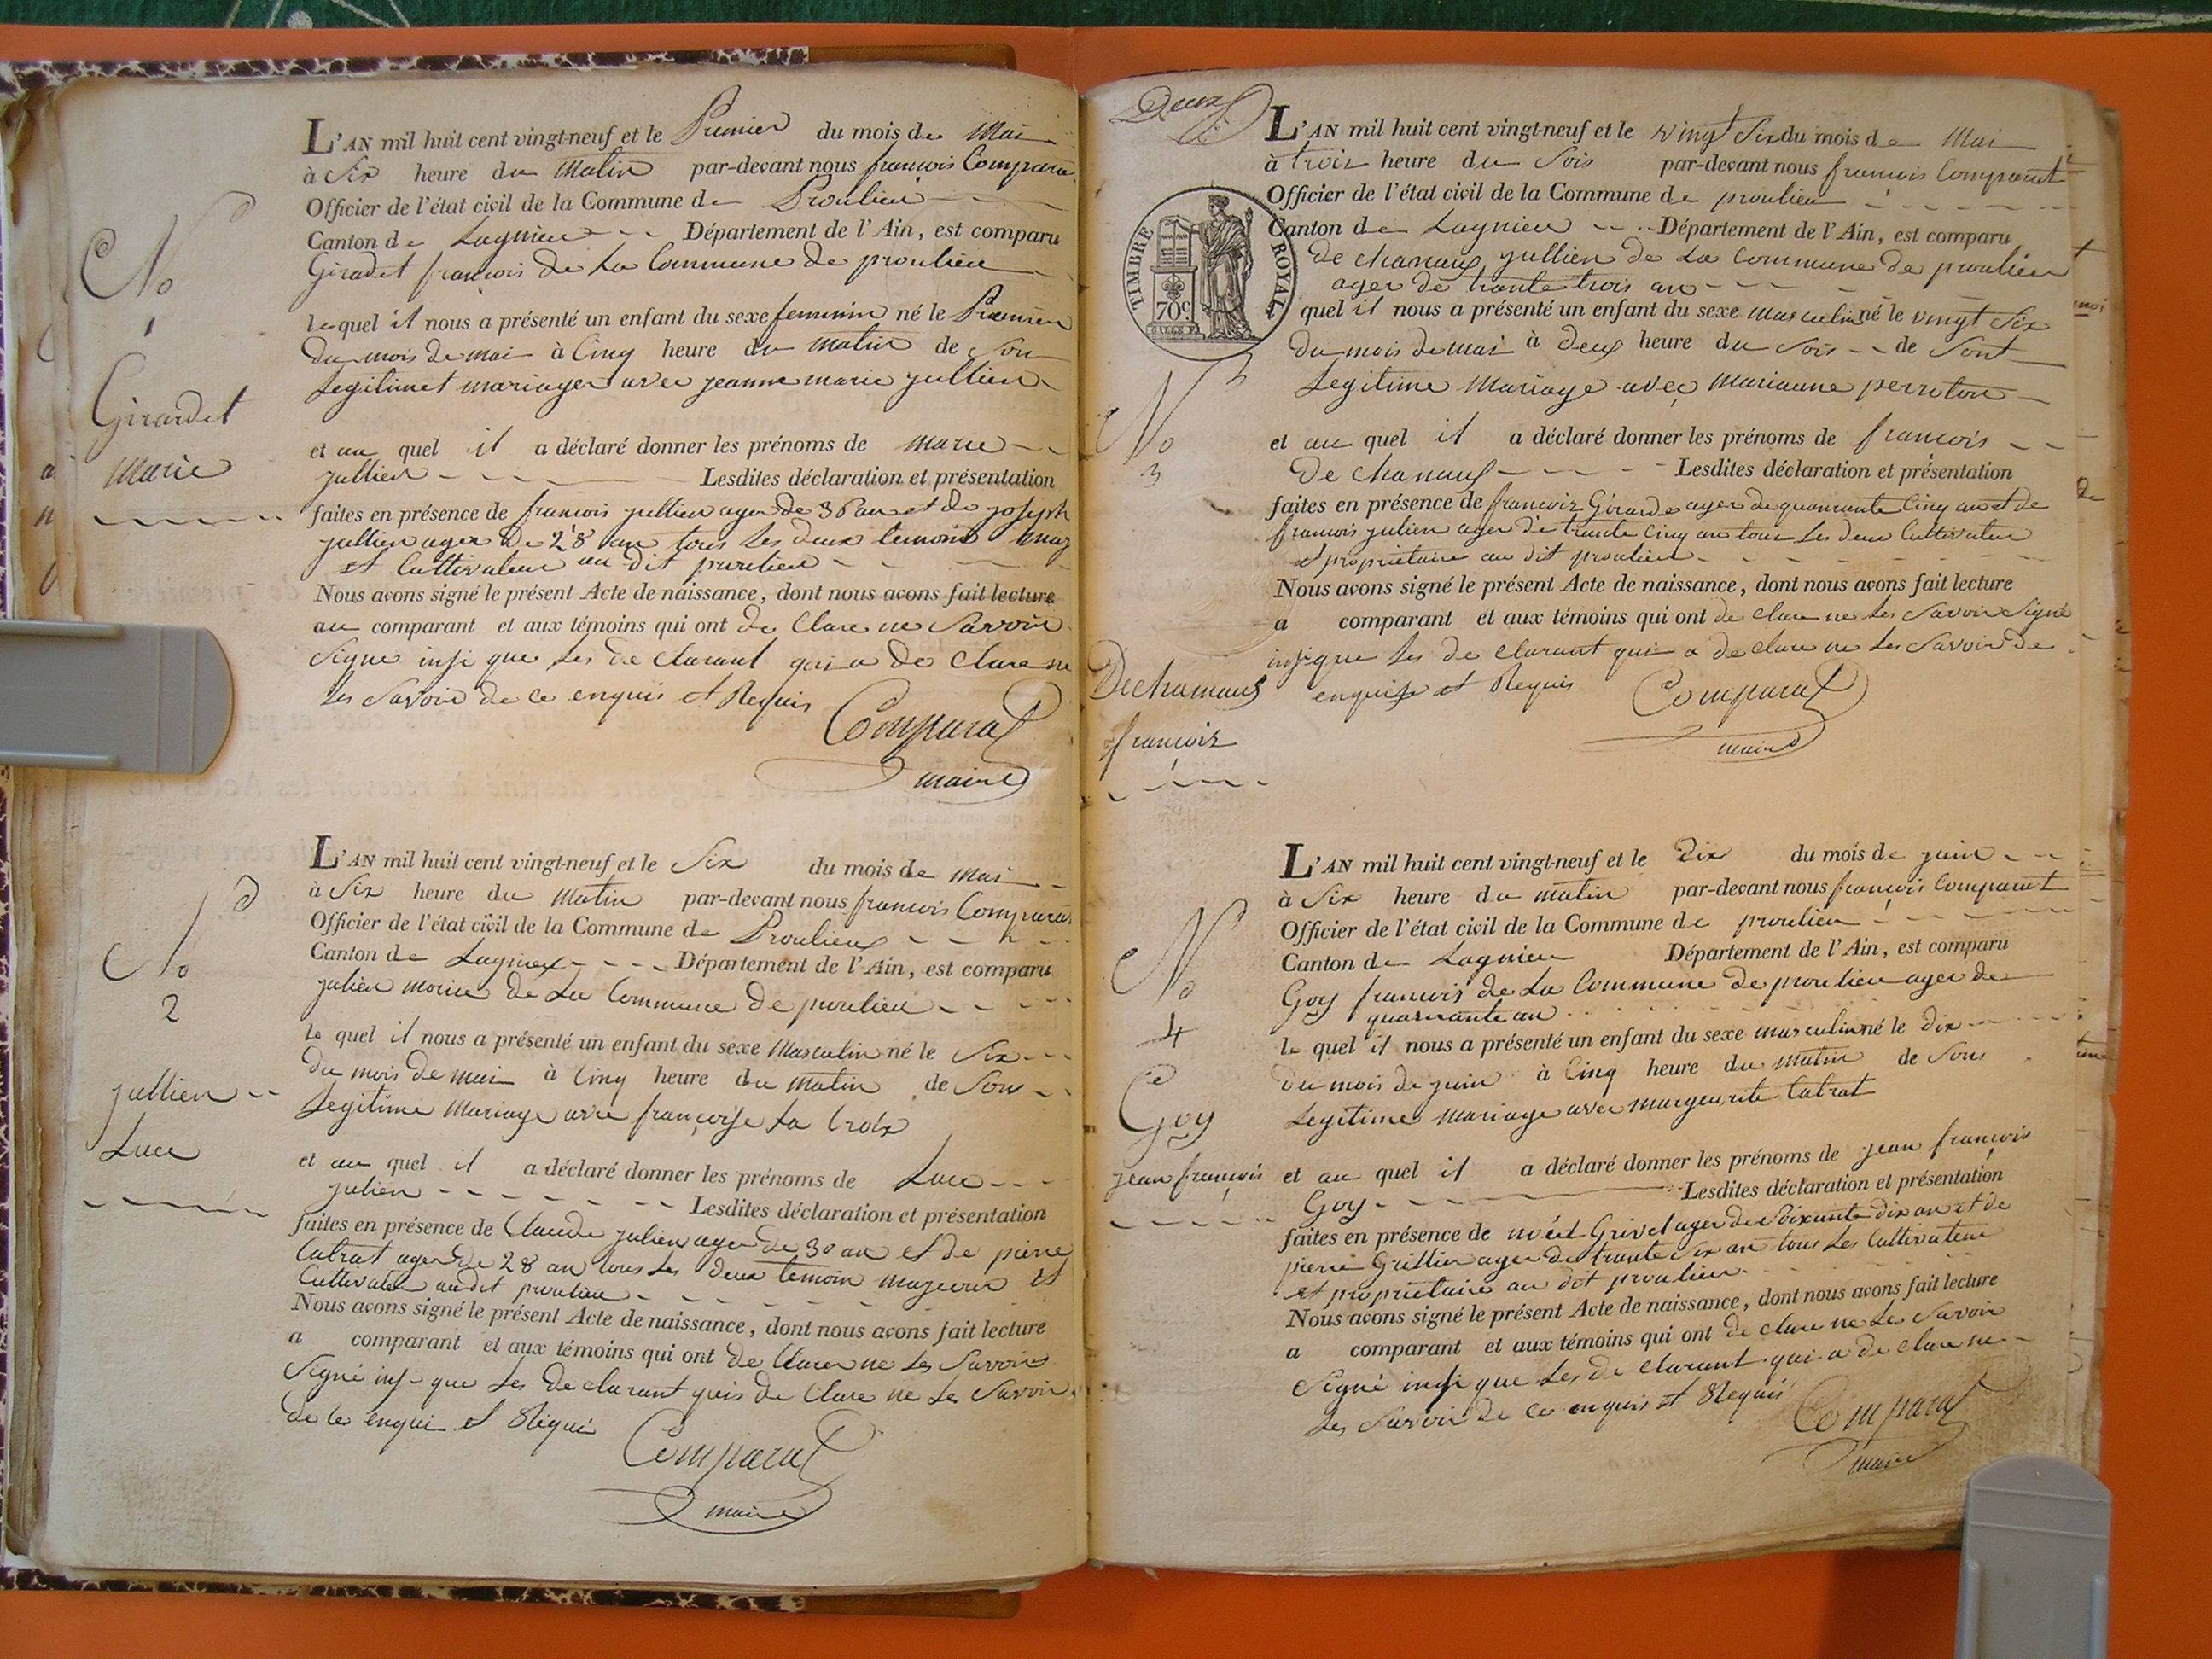 L'AN mil huit cent vingt-neuf et le Premier du mois de Mai
à Six heure du Matin par-devant nous francois Comparat
Officier de l'état civil de la Commune de Proulieu
Canton de Lagnieu Département de l'Ain, est comparu
Giradet francois de La Commune de proulieu
lequel il nous a présenté un enfant du sexe feminin né le Premier
du mois de mai à Cinq heure du matin de Son
Legitimet mariager avec jeanne marie jullien
et au quel il a déclaré donner les prénoms de marie
jullien Lesdites déclaration et présentation
faites en présence de francois jullien ager de 36 an et de joseph
jullien ager de 28 an tous Les deux temoins
et Cultivateur au dit proulieu
Nous avons signé le présent Acte de naissance, dont nous avons fait lecture
au comparant et aux témoins qui ont de Clare ne Savoir
Signe insi que Les de Clarant qui a de Clare ne
Les Savoir de ce enquis et Requis
Comparat
maire
No
1
Girardet
Marie
L'AN mil huit cent vingt-neuf et le Six du mois de mai
à Six heure du Matin par-devant nous francois Comparat
Officier de l'état civil de la Commune de Proulieux
Canton de Lagnieu Département de l'Ain, est comparu
julien morice de La Commune de proulieu
le quel il nous a présenté un enfant du sexe Masculin né le Six
du mois de mai à Cinq heure du matin de Son
Legitime Mariage avec françoise La Croix
et au quel il a déclaré donner les prénoms de Luce
julien Lesdites déclaration et présentation
faites en présence de Claude julien ager de 30 an et de pierre
Catrat ager de 28 an tous Les deux temoin majeour et
Cultivateu audit proulieu
Nous avons signé le présent Acte de naissance, dont nous avons fait lecture
a comparant et aux témoins qui ont de Clarer ne Les Savoir
Signé insi que Les De clarant quis de Clare ne Le Savoir
de Ce enqui et Réqui
Comparat
maire
No
2
jullien
Luce
Deux
L'AN mil huit cent vingt-neuf et le vingt Six du mois de Mai
à trois heure du Sois par-devant nous francois Comparat
Officier de l'état civil de la Commune de proulieu
Canton de Lagnieu Département de l'Ain, est comparu
De chanaux jullien de La Commune de proulieu
ager de trante trois an
quel il nous a présenté un enfant du sexe masculin né le vingt Six
du mois de mai à deux heure du Sois de Sont
Legitime Mariage avec Marianne perroton
et au quel il a déclaré donner les prénoms de francois
De chanaux Lesdites déclaration et présentation
faites en présence de francois Girarde ager de quarante Cinq an et de
francois julien ager de trante Cinq an tous Les deux Cultivateur
et proprietaire au dit proulieu
Nous avons signé le présent Acte de naissance, dont nous avons fait lecture
a comparant et aux témoins qui ont de clare ne Les Savoir Signé
insi que Les de clarant qui a de clare ne Les Savoir de
enquis et Requis
Comparat
maire
TIMBRE ROYAL
70c
No
3
Dechanaux
françois
L'AN mil huit cent vingt-neuf et le Dix du mois de juin
à Six heure du matin par-devant nous françois Comparat
Officier de l'état civil de la Commune de proulieu
Canton de Lagnieu Département de l'Ain, est comparu
Goy francois de La Commune de proulieu ager de
quarante an
le quel il nous a présenté un enfant du sexe masculin né le dix
du mois de juin à Cinq heure du matin de Son
Legitime mariage avec margeurite Catrat
et au quel il a déclaré donner les prénoms de jean françois
Goy Lesdites déclaration et présentation
faites en présence de Grivel ager de Soixante dix an et de
pierre Grillier ager de trante Six an tous Les Cultivateur
et proprietaire au dit proulieu
Nous avons signé le présent Acte de naissance, dont nous avons fait lecture
a comparant et aux témoins qui ont de clare ne Les Savoir
Signé insi que Les de Clarant qui a de Clare ne
Les Savoir de Ce enquis et Requis
Comparat
maire
No
4
Goy
jean françois